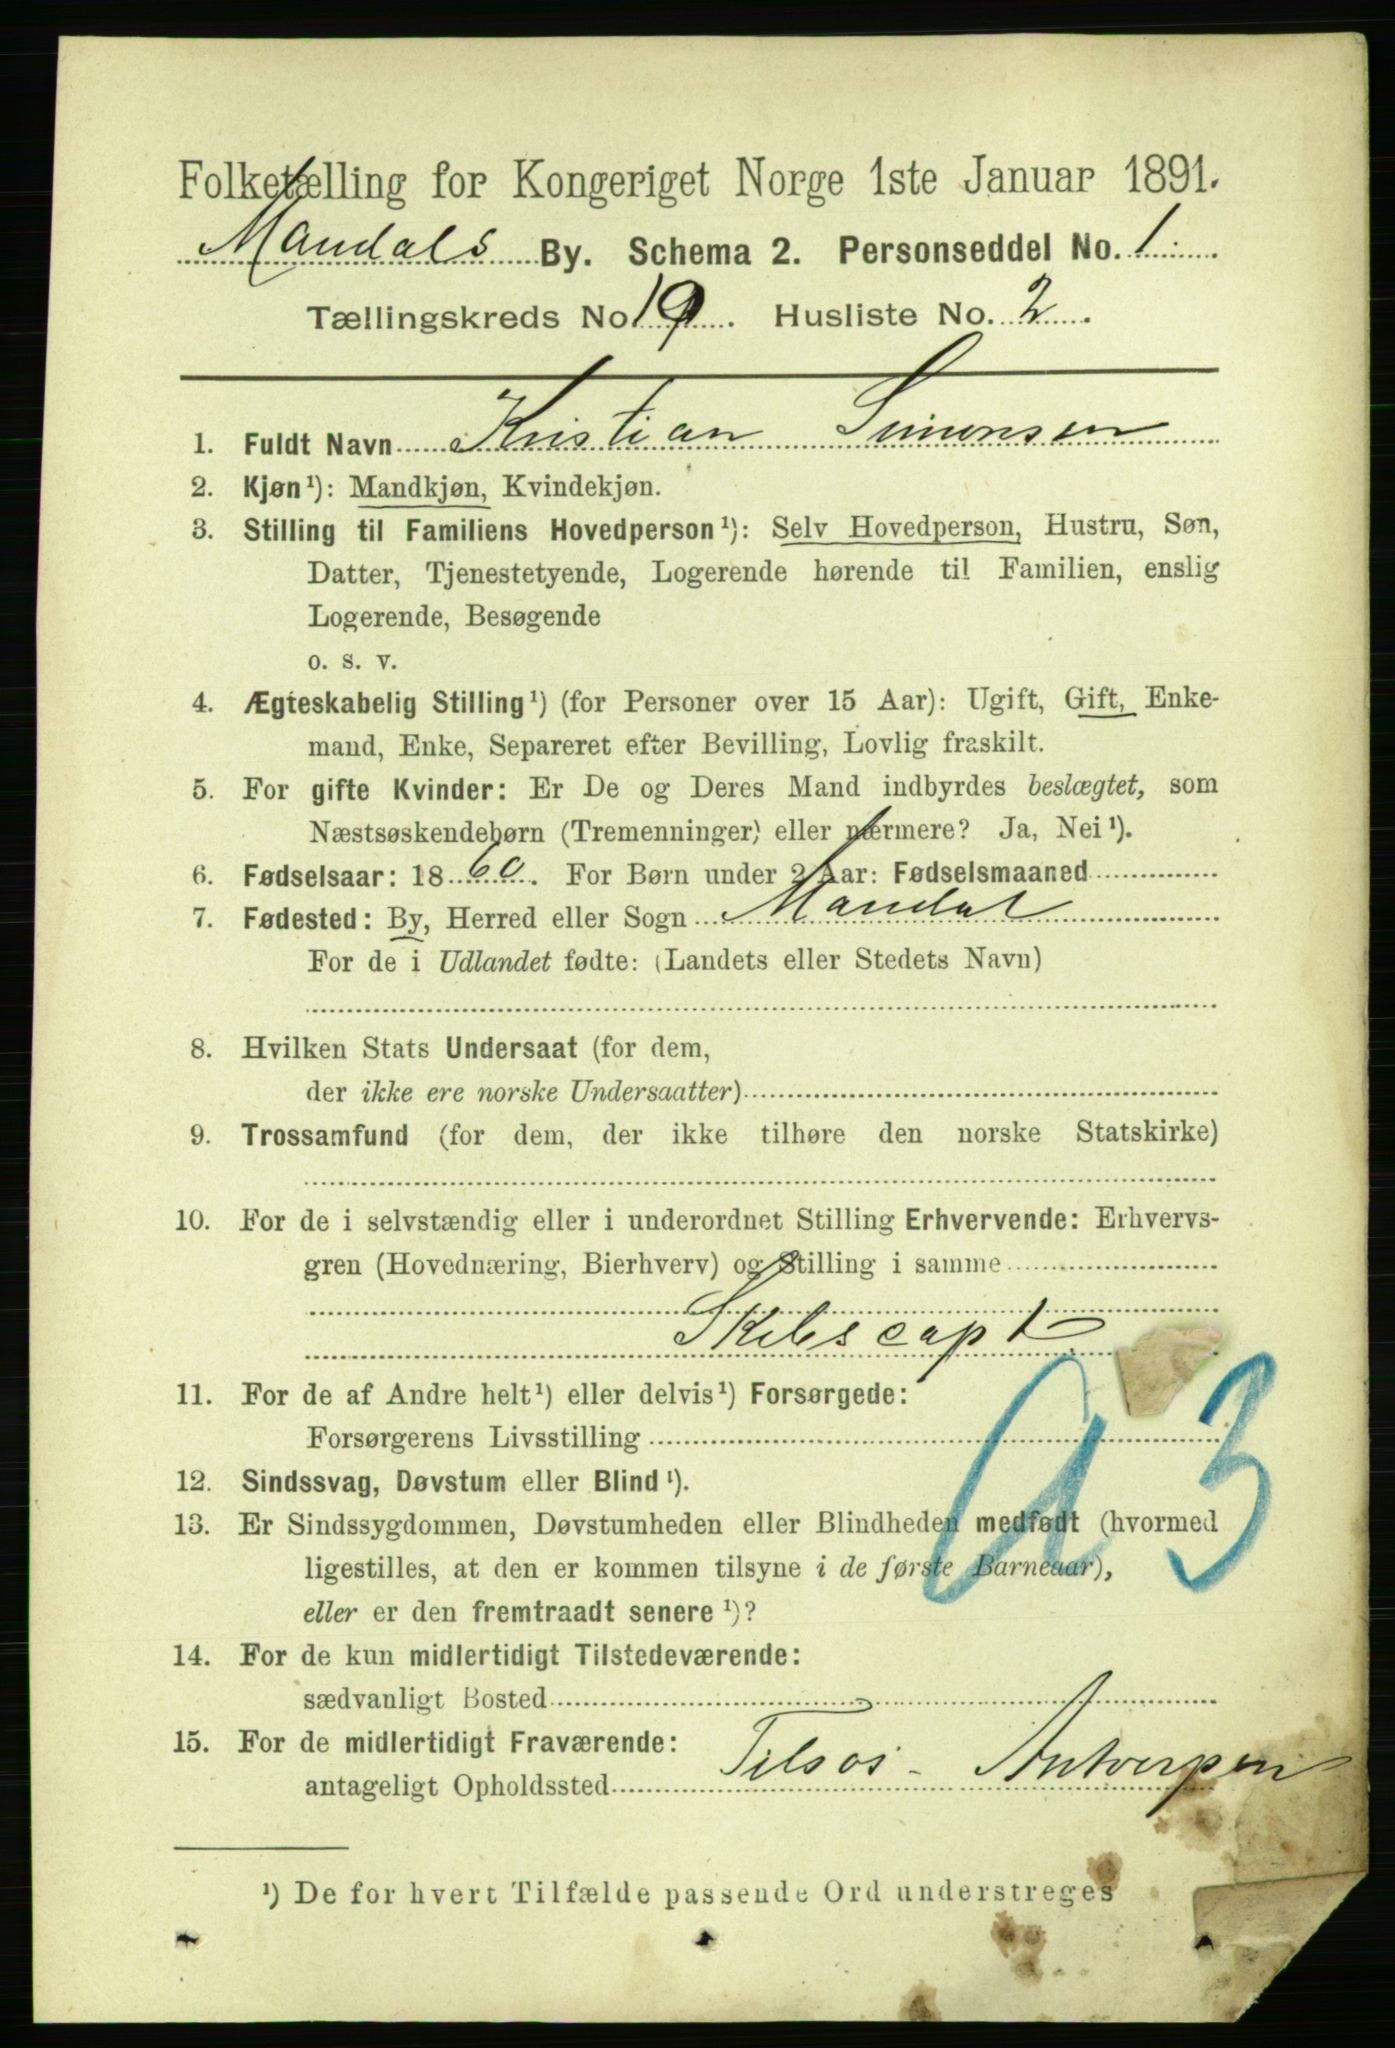 Folketælling for Kongeriget Norge 1ste Januar 1891.
Mandals By. Schema 2. Personseddel No. 1.
Tællingskreds No. 19. Husliste No. 2.
1. Fuldt Navn Kristian Simonsen
2. Kjøn¹): Mandkjøn, Kvindekjøn.
3. Stilling til Familiens Hovedperson¹): Selv Hovedperson, Hustru, Søn,
Datter, Tjenestetyende, Logerende hørende til Familien, enslig
Logerende, Besøgende
o. s. v.
4. Ægteskabelig Stilling¹) (for Personer over 15 Aar): Ugift, Gift, Enke-
mand, Enke, Separeret efter Bevilling, Lovlig fraskilt.
5. For gifte Kvinder: Er De og Deres Mand indbyrdes beslægtet, som
Næstsøskendebørn (Tremenninger) eller nærmere? Ja, Nei¹).
6. Fødselsaar: 1860. For Børn under 2 Aar: Fødselsmaaned
7. Fødested: By, Herred eller Sogn Mandal
For de i Udlandet fødte: (Landets eller Stedets Navn)
8. Hvilken Stats Undersaat (for dem,
der ikke ere norske Undersaatter)
9. Trossamfund (for dem, der ikke tilhøre den norske Statskirke)
10. For de i selvstændig eller i underordnet Stilling Erhvervende: Erhvervs-
gren (Hovednæring, Bierhverv) og Stilling i samme
Skibscapt
11. For de af Andre helt¹) eller delvis¹) Forsørgede:
Forsørgerens Livsstilling
a 3
12. Sindssvag, Døvstum eller Blind¹).
13. Er Sindssygdommen, Døvstumheden eller Blindheden medfødt (hvormed
ligestilles, at den er kommen tilsyne i de første Barneaar),
eller er den fremtraadt senere¹)?
14. For de kun midlertidigt Tilstedeværende:
sædvanligt Bosted
15. For de midlertidigt Fraværende:
antageligt Opholdssted Tilsøs - Antverpen
¹) De for hvert Tilfælde passende Ord understreges